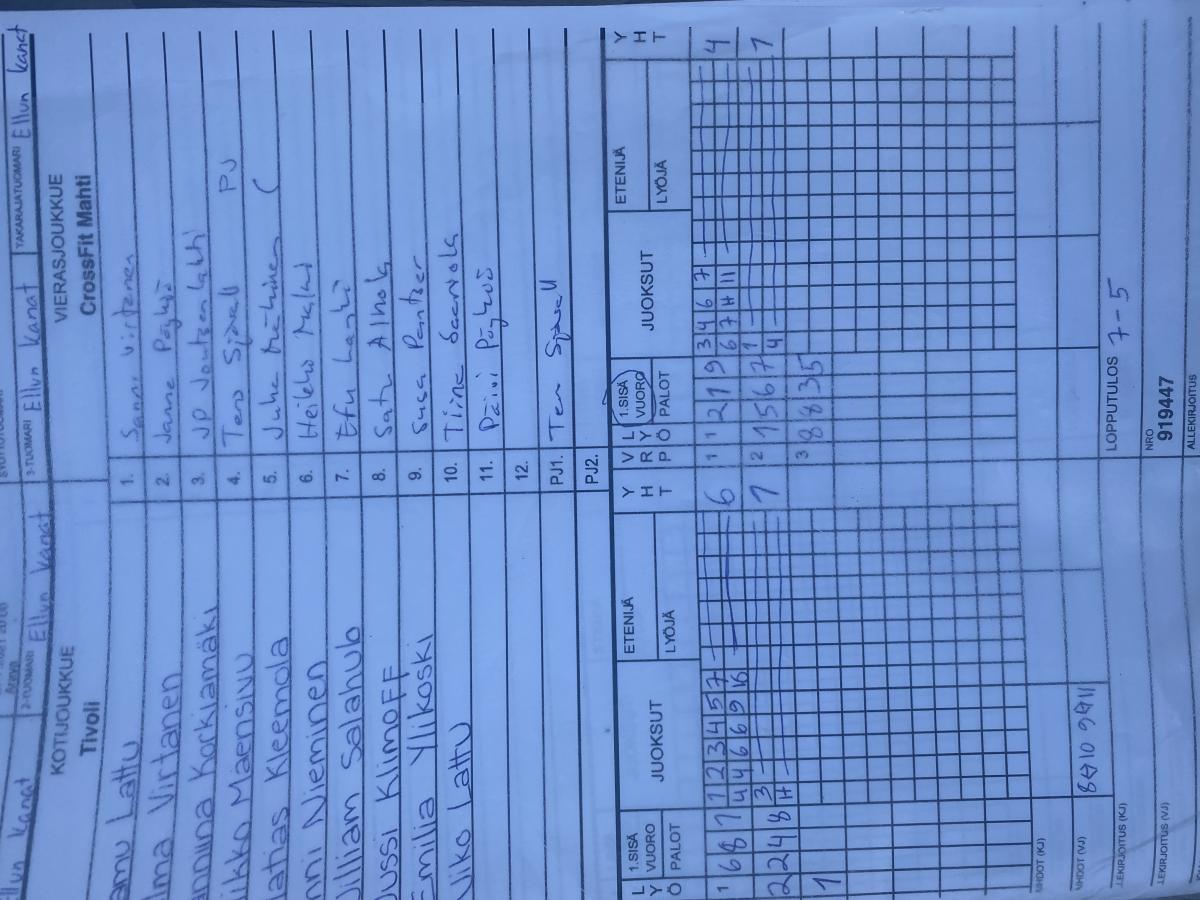 Ellun kanat
2-TUOMARI Ellun kanat
3-TUOMARI Ellun kanat
TAKARAJATUOMARI Ellun kanat
KOTIJOUKKUE
Tivoli
VIERASJOUKKUE
CrossFit Mahti
amu Lattu
lma Virtanen
anniina Korkiamäki
iikko Mäensivu
atias Kleemola
nni Nieminen
illiam Salahub
ussi Klimoff
Emilia Ylikoski
Niko Lattu
1. Sanni Virtanen
2. Janne Pöyhö
3. JP Joutsenlahti
4. Tero Sjövall PJ
5. Juha Mäkinen (
6. Heikko
7. Efu
8. Satu Alhola
9. Susa Pantzer
10. Tiina Saarvola
11. Päivi Pöyhö
12.
PJ1. Tero Sjövall
PJ2.
L Y Ö 1.SISÄ VUORO PALOT JUOKSUT ETENIJÄ LYÖJÄ Y H T
V R P L Y Ö 1.SISÄ VUORO PALOT JUOKSUT ETENIJÄ LYÖJÄ Y H T
1 6 8 7 1 2 3 4 5 7 6
4 4 6 6 9 16
2 2 4 8 3 1
H
1
1 1 2 1 9 3 4 6 7 4
6 7 H 11
2 7 5 6 7 1 1
4
3 8 8 3 5
HDOT (KJ)
HDOT (VJ) 8⇔10 9⇔11
LLEKIRJOITUS (KJ)
LLEKIRJOITUS (VJ)
LOPPUTULOS 7-5
NRO
919447
ALLEKIRJOITUS